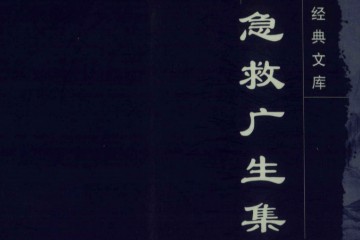 经典文库
急救广生集